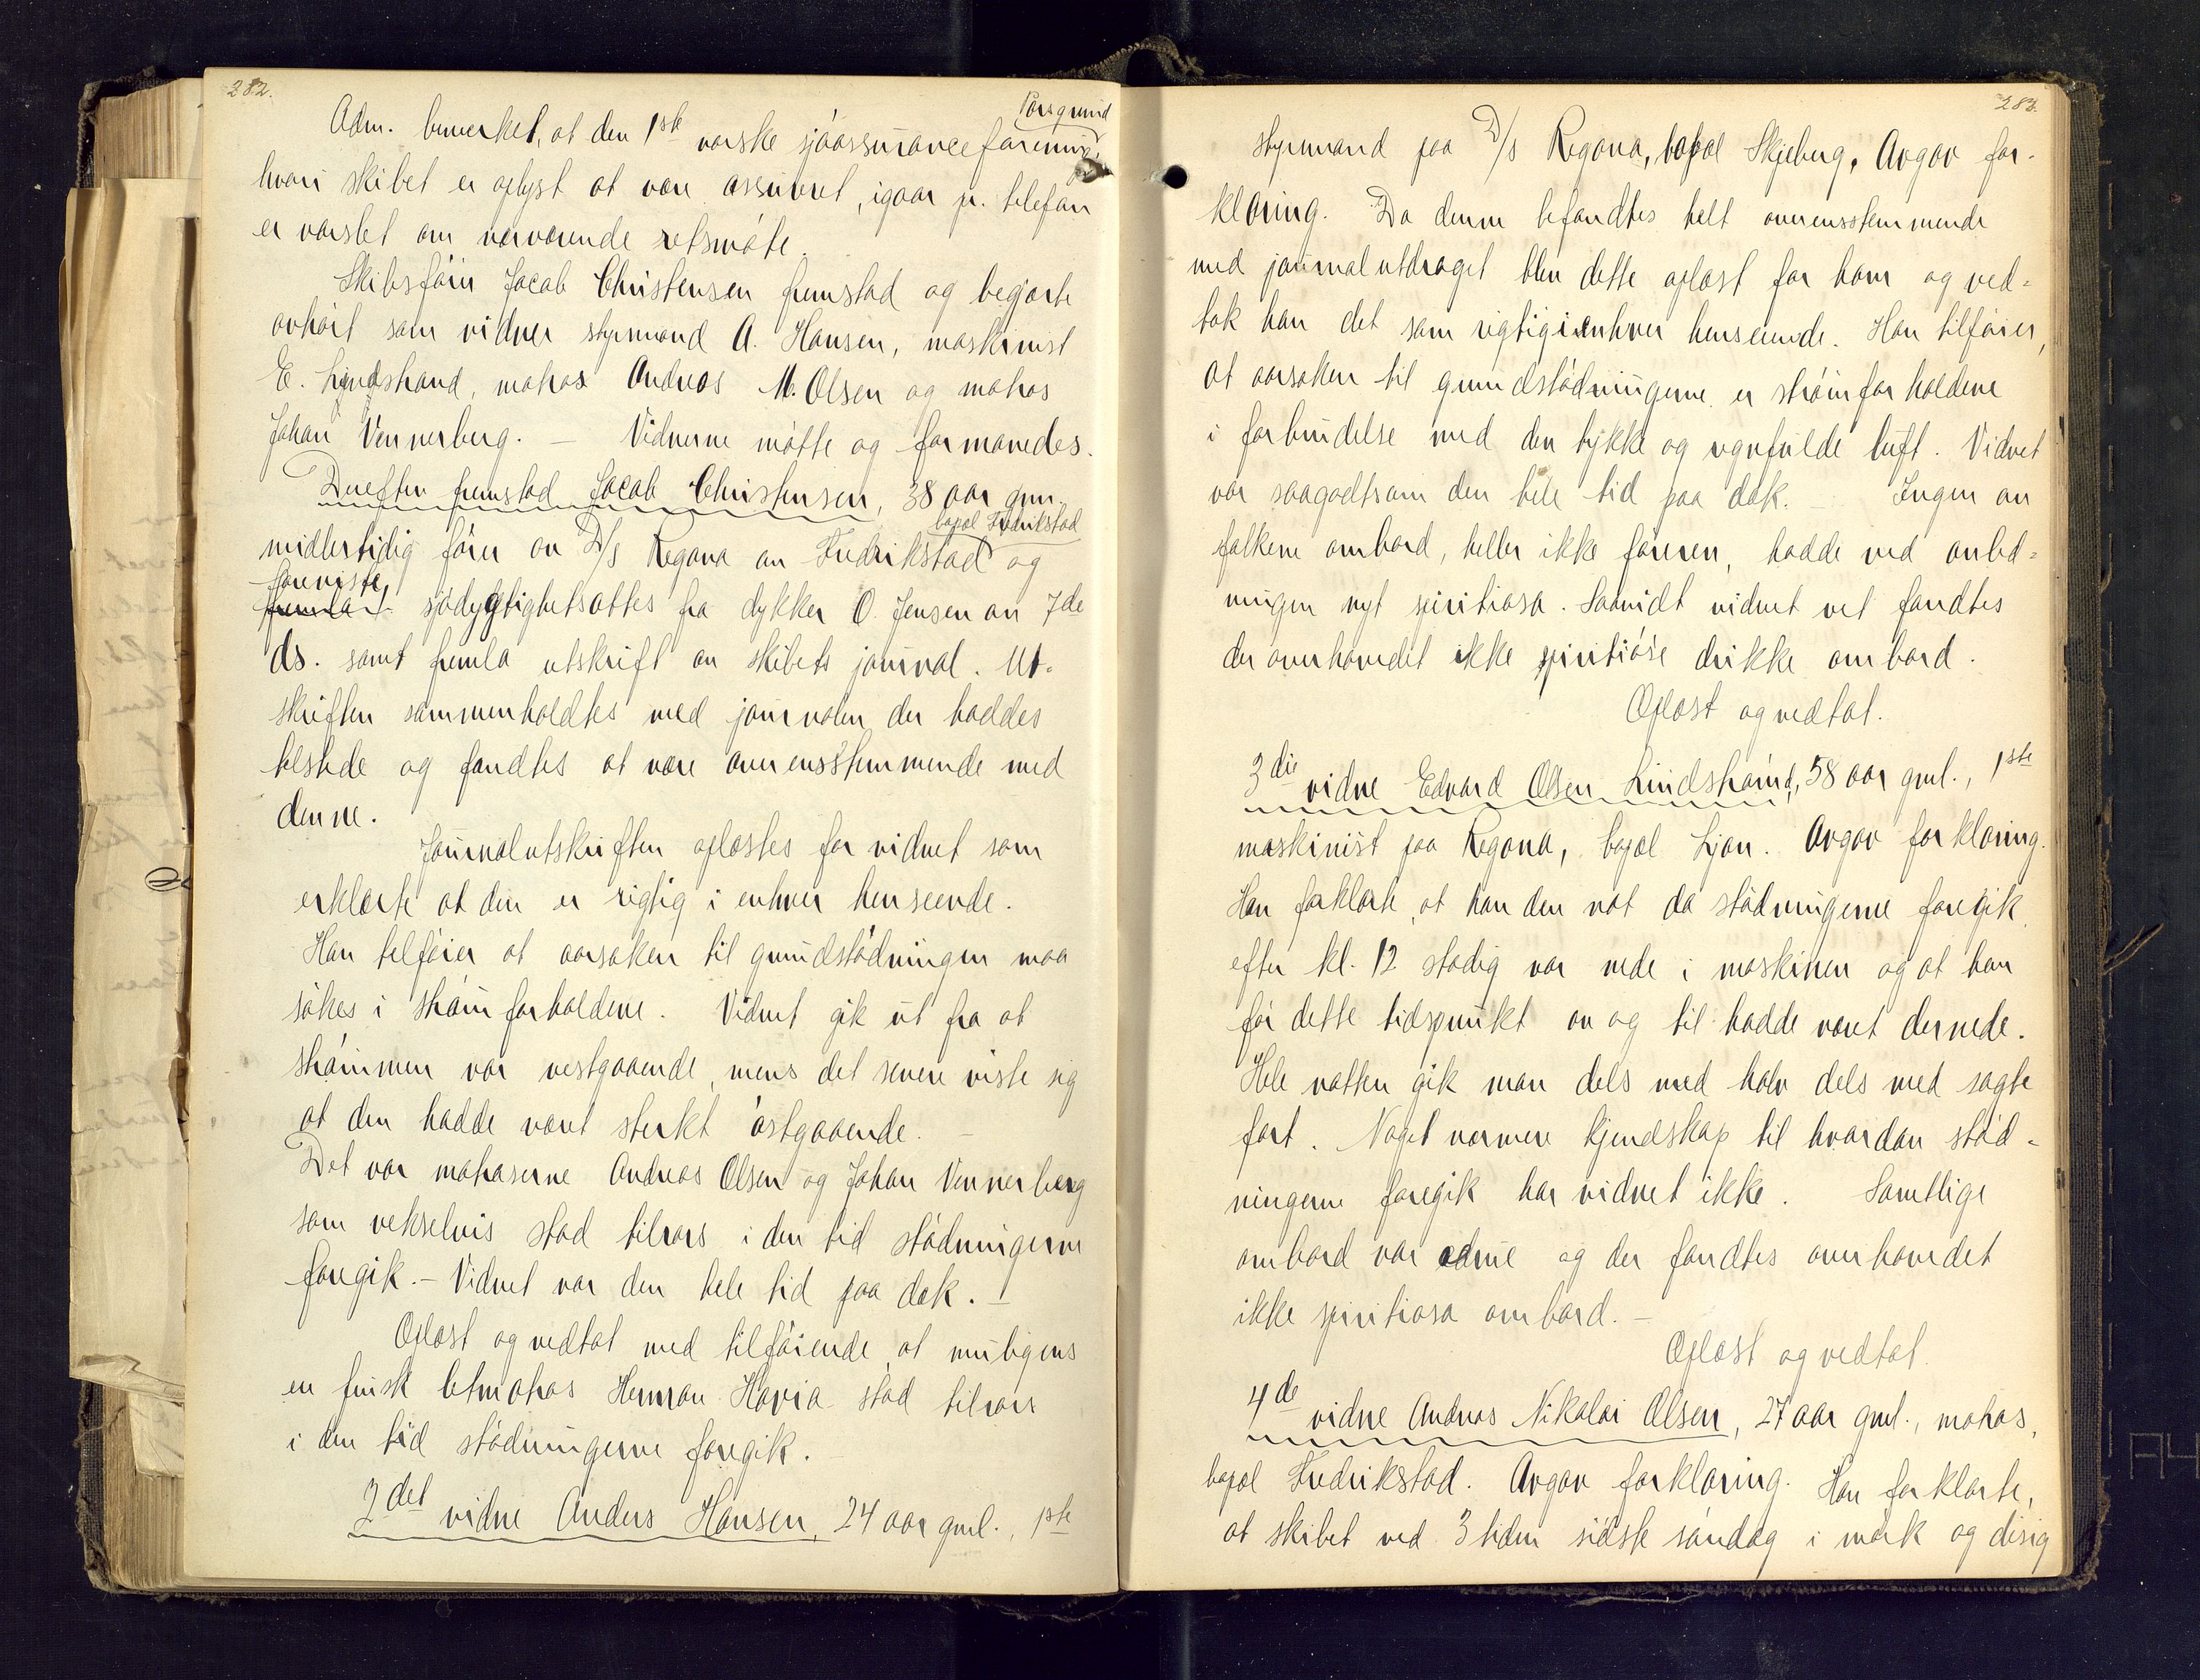 282.
Adm. bemerket, at den 1ste norske sjöassuranceforening, Porsgrund
hvori skibet er oplyst at være assureret, igaar pr. telefon
er varslet om nærværende retsmöte.
Skibsförer Jacob Christensen fremstod og begjærte
avhört som vidner styrmand A. Hansen, maskinist
E. Lindstrand, matros Andreas M. Olsen og matros
Johan Vennerberg. — Vidnerne mötte og formanedes.
Derefter fremstod Jacob Christensen, 38 aar gml.,
midlertidig förer av D/s Regona av Fredrikstad bopæl Fredrikstad og
foreviste sjödygtighetsattes fra dykker O. Jensen av 7de
ds. samt fremla utskrift av skibets journal. Ut-
skriften sammenholdtes med journalen der haddes
tilstede og fandtes at være overensstemmende med
denne.
Journalutskriften oplæstes for vidnet som
erklærte at den er rigtig i enhver henseende.
Han tilföier at aarsaken til grundstödningen maa
sökes i strömforholdene. Vidnet gik ut fra at
strömmen var vestgaaende, mens det senere viste sig
at den hadde været sterkt östgaaende. —
Det var matroserne Andreas Olsen og Johan Vennerberg
som vekselvis stod tilrors i den tid stödningerne
foregik. — Vidnet var den hele tid paa dæk. —
Oplæst og vedtat med tilföiende, at muligens
en finsk letmatros Herman Havia stod tilrors
i den tid stödningerne foregik. —
2det vidne Anders Hansen, 24 aar gml., 1ste
283.
styrmand paa D/s Regona, bopæl Skjeberg. Avgav for-
klaring. Da denne befandtes helt overensstemmende
med journalutdraget blev dette oplæst for ham og ved-
tok han det som rigtig i enhver henseende. Han tilföier,
at aarsaken til grundstödningerne er strömforholdene
i forbindelse med den tykke og regnfulde luft. Vidnet
var saagodtsom den hele tid paa dæk. — Ingen av
folkene ombord, heller ikke föreren, hadde ved anled-
ningen nyt spirituosa. Saavidt vidnet vet fandtes
der overhovedet ikke spirituöse drikke ombord.
Oplæst og vedtat.
3die vidne Edvard Olsen Lindstrand, 58 aar gml., 1ste
maskinist paa Regona, bopæl Ljan. Avgav forklaring.
Han forklarte, at han den nat da stödningerne foregik
efter kl. 12 stadig var nede i maskinen og at han
för dette tidspunkt av og til hadde været dernede.
Hele natten gik man dels med halv dels med sagte
fart. Noget nærmere kjendskap til hvordan stöd-
ningerne foregik har vidnet ikke. Samtlige
ombord var ædrue og der fandtes overhovedet
ikke spirituosa ombord. —
Oplæst og vedtat.
4de vidne Andreas Nikolai Olsen, 27 aar gml., matros,
bopæl Fredrikstad. Avgav forklaring. Han forklarte,
at skibet ved 3 tiden sidste söndag i mörk og disig